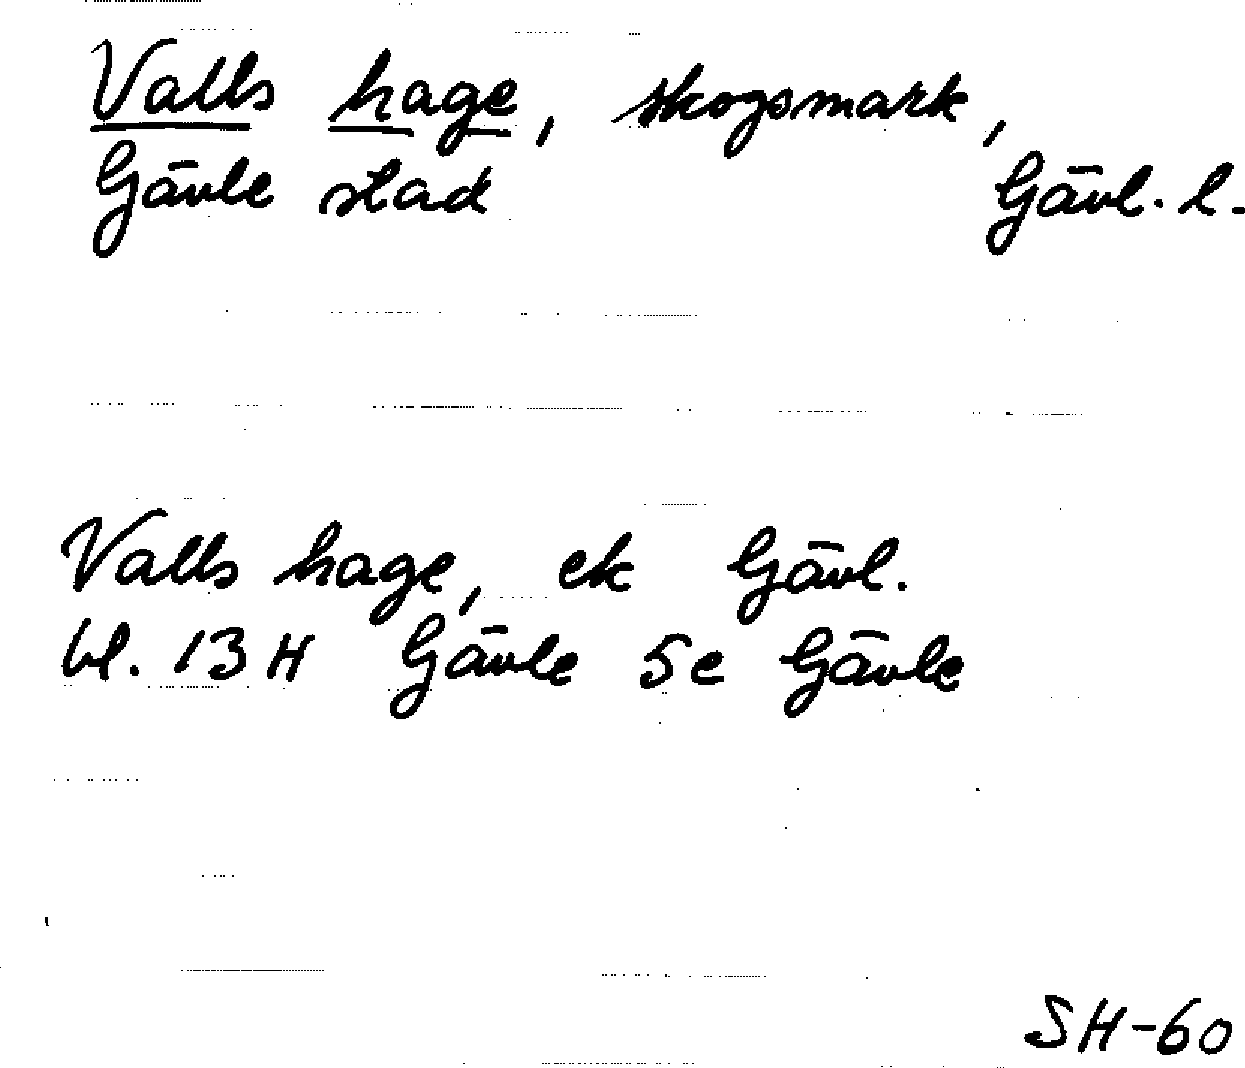 Valls hage, skogsmark,
Gävle stad Gävl. l.
Valls hage, ek Gävl.
bl. 13 H Gävle 5e Gävle
SH-60